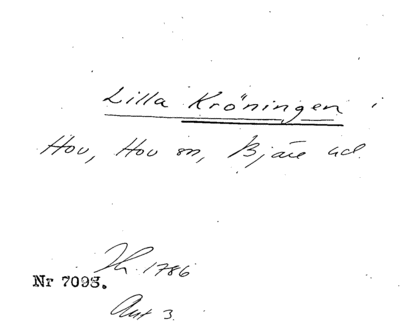 Lilla Kröningen i
Hov, Hov sn, Bjäre hd.
1786
Nr 7093.
Ant 3.